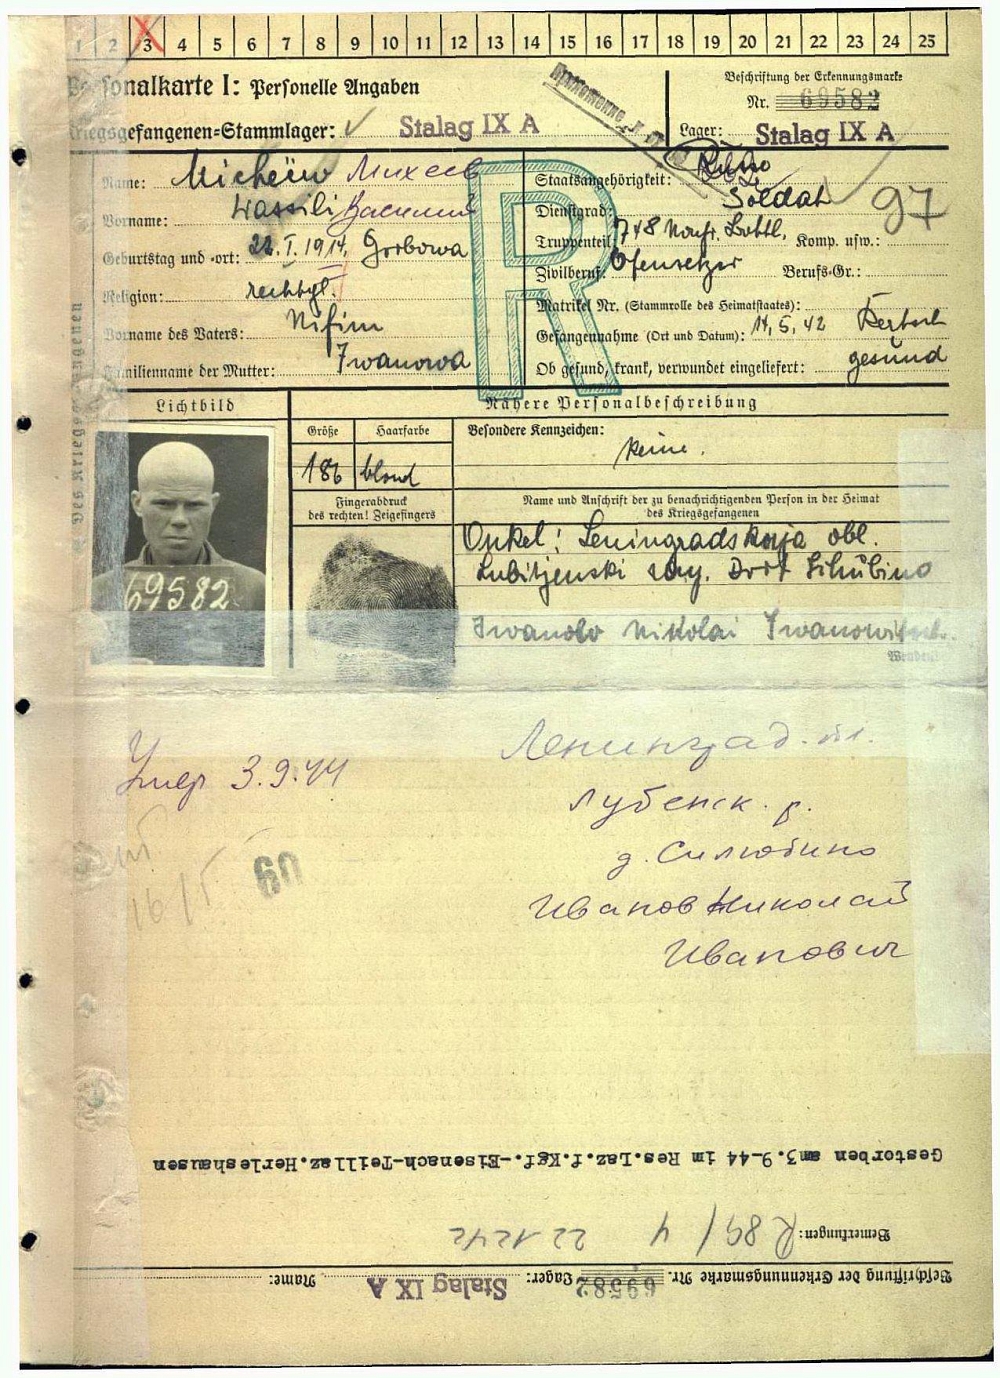 1 2 3 4 5 6 7 8 9 10 11 12 13 14 15 16 17 18 19 20 21 22 23 24 25
Personalkarte I: Personelle Angaben
Beschriftung der Erkennungsmarke
Nr. 69582
Kriegsgefangenen-Stammlager: Stalag IX A
Lager: Stalag IX A
Name: Michejew Михеев
Staatsangehörigkeit: Russe
Vorname: Wassili Василий
Dienstgrad: Soldat
97
Truppenteil: 748 Komp. usw.:
Geburtstag und -ort: 22.I.1914, Gorbowa
Zivilberuf: Ofensetzer Berufs-Gr.:
Religion:
Matrikel Nr. (Stammrolle des Heimatstaates):
Vorname des Vaters: Nifim
Gefangennahme (Ort und Datum): 14,5,42 Kertsch
Familienname der Mutter: Iwanowa
Ob gesund, krank, verwundet eingeliefert: gesund
R
des Kriegsgefangenen
Lichtbild
Nähere Personalbeschreibung
Größe Haarfarbe
Besondere Kennzeichen:
186 blond
keine.
Fingerabdruck
des rechten! Zeigefingers
Name und Anschrift der zu benachrichtigenden Person in der Heimat
des Kriegsgefangenen
69582
Onkel: Leningradskaja obl.
Dorf
Iwanow Nikolai Iwanowitsch.
Wenden
Умер 3.9.44
Ленинград. обл.
Лубенск. р.
д. Силюбино
Иванов Николай
Иванович
60
Gestorben am 3.9.44 im Res.Laz.f.Kgf.-Eisenach-Teillaz.Herleshausen
Bemerkungen: R 89/4 22 12 42
Beschriftung der Erkennungsmarke Nr. 69582 Lager: Stalag IX A Name: